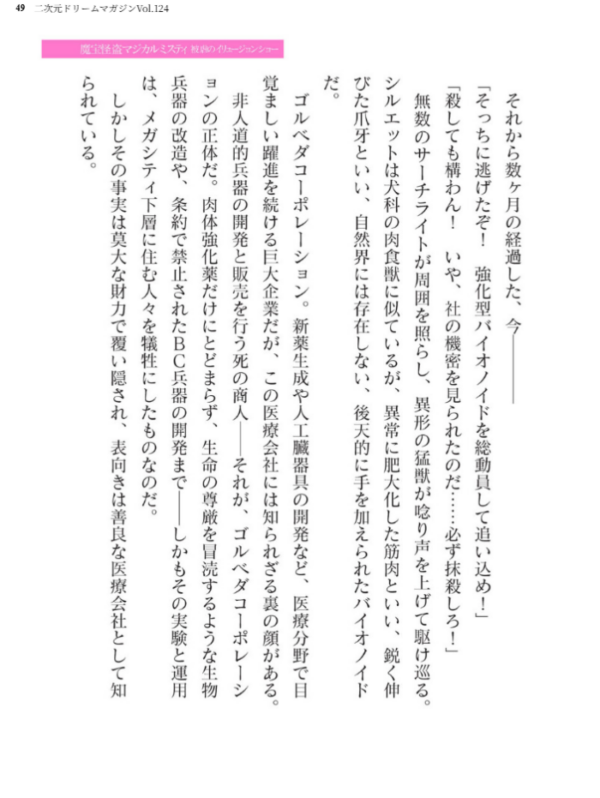 49 二次元ドリームマガジンVol.124
魔宝怪盗マジカルミスティ 恥辱のイリュージョンショー
それから数ヶ月の経過した、今――――
「そっちに逃げたぞ！　強化型バイオノイドを総動員して追い込め！」
「殺しても構わん！　いや、社の機密を見られたのだ……必ず抹殺しろ！」
無数のサーチライトが周囲を照らし、異形の猛獣が唸り声を上げて駆け巡る。
シルエットは犬科の肉食獣に似ているが、異常に肥大化した筋肉といい、鋭く伸
びた爪牙といい、自然界には存在しない、後天的に手を加えられたバイオノイド
だ。
ゴルベダコーポレーション。新薬生成や人工臓器具の開発など、医療分野で目
覚ましい躍進を続ける巨大企業だが、この医療会社には知られざる裏の顔がある。
非人道的兵器の開発と販売を行う死の商人――それが、ゴルベダコーポレーシ
ョンの正体だ。肉体強化薬だけにとどまらず、生命の尊厳を冒涜するような生物
兵器の改造や、条約で禁止されたＢＣ兵器の開発まで――しかもその実験と運用
は、メガシティ下層に住む人々を犠牲にしたものなのだ。
しかしその事実は莫大な財力で覆い隠され、表向きは善良な医療会社として知
られている。